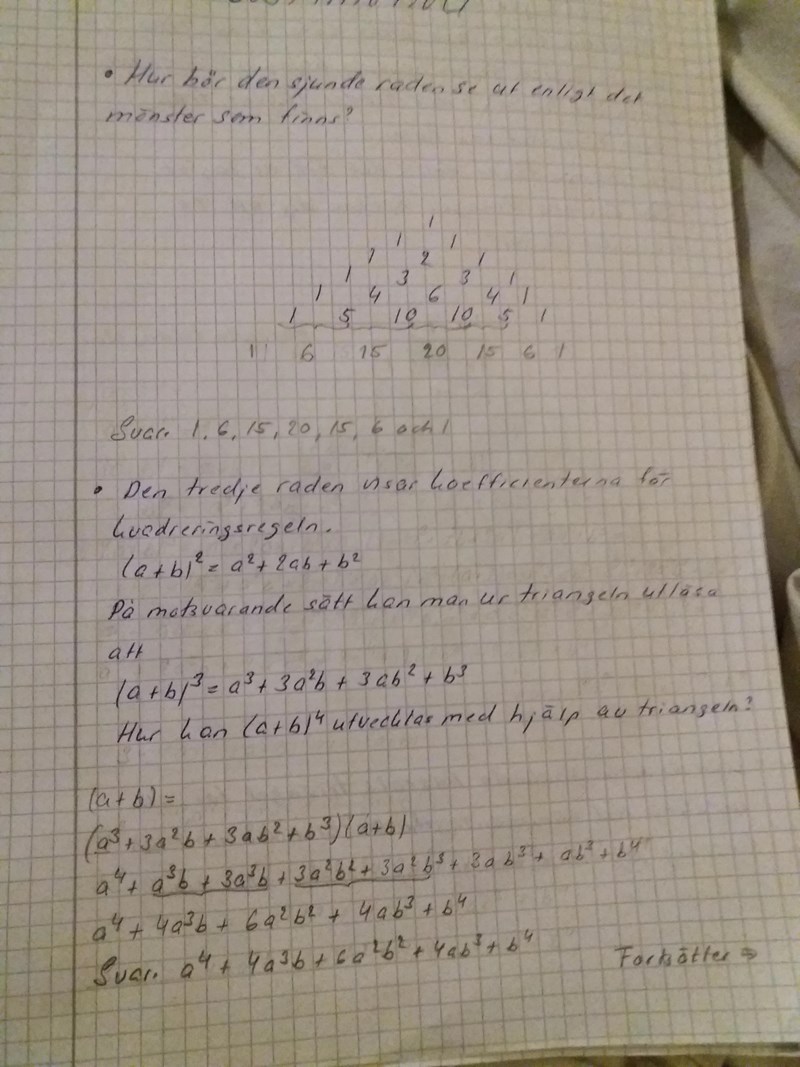 • Hur bör den sjunde raden se ut enligt det
mönster som finns?
1
1 1
1 2 1
1 3 3 1
1 4 6 4 1
1 5 10 10 5 1
1 6 15 20 15 6 1
Svar. 1, 6, 15, 20, 15, 6 och 1
• Den tredje raden visar koefficienterna för
kvadreringsregeln.
(a+b)² = a² + 2ab + b²
På motsvarande sätt kan man ur triangeln utläsa
att
(a+b)³ = a³ + 3a²b + 3ab² + b³
Hur kan (a+b)⁴ utvecklas med hjälp av triangeln?
(a+b) =
(a³ + 3a²b + 3ab² + b³)(a+b)
a⁴ + a³b + 3a³b + 3a²b² + 3a²b³ + 3ab³ + ab³ + b⁴
a⁴ + 4a³b + 6a²b² + 4ab³ + b⁴
Svar. a⁴ + 4a³b + 6a²b² + 4ab³ + b⁴
Fortsätter ⇒